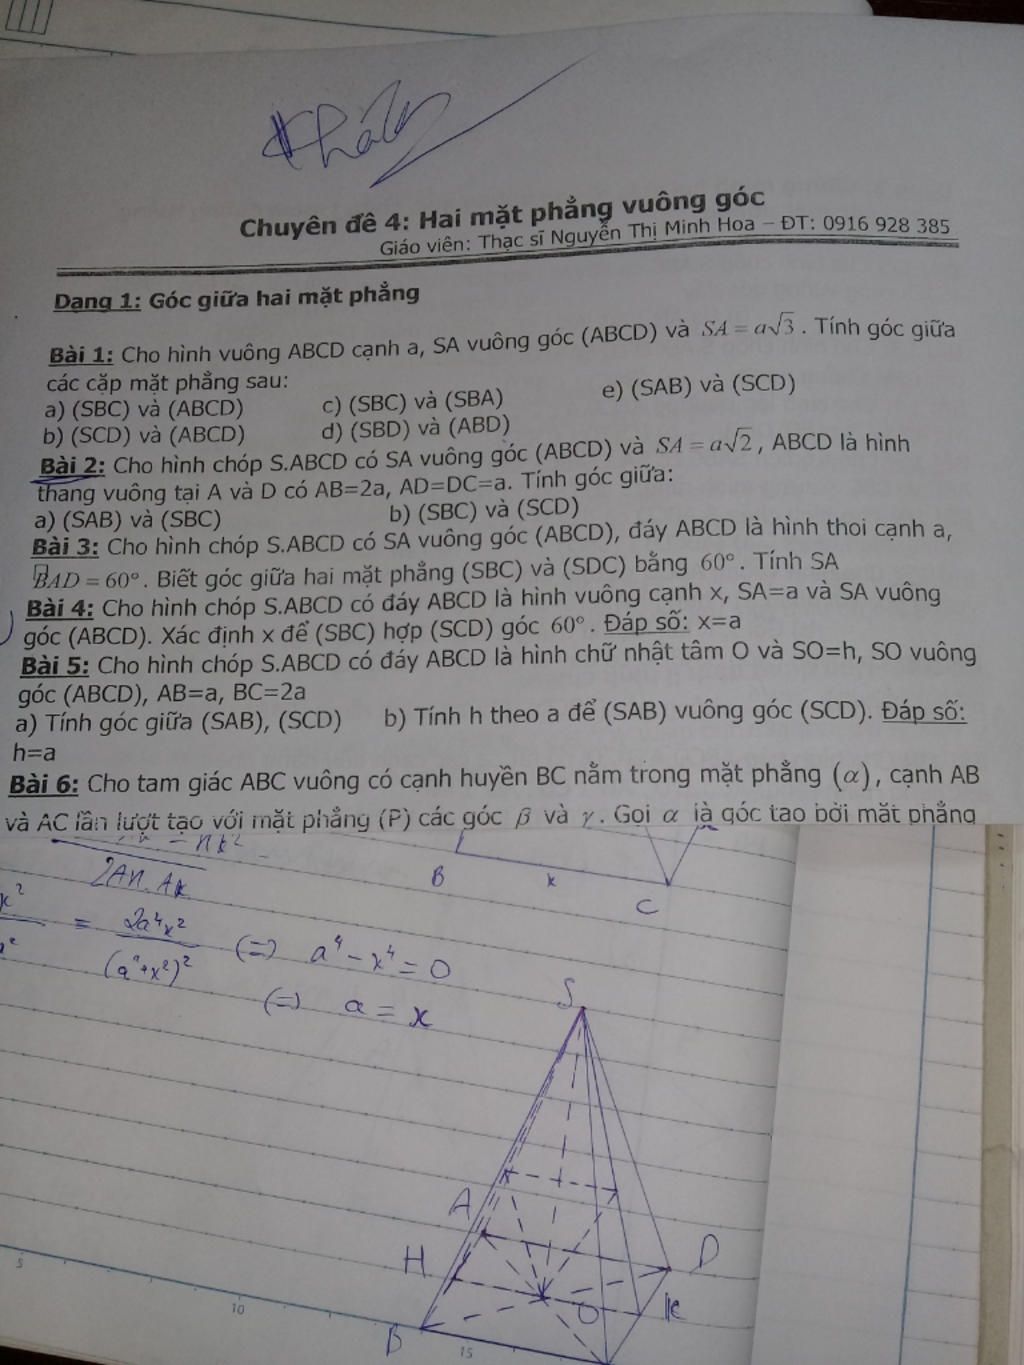 Chuyên đề 4: Hai mặt phẳng vuông góc
Giáo viên: Thạc sĩ Nguyễn Thị Minh Hoa – ĐT: 0916 928 385
Dạng 1: Góc giữa hai mặt phẳng
Bài 1: Cho hình vuông ABCD cạnh a, SA vuông góc (ABCD) và SA = a√3. Tính góc giữa
các cặp mặt phẳng sau:
a) (SBC) và (ABCD) c) (SBC) và (SBA) e) (SAB) và (SCD)
b) (SCD) và (ABCD) d) (SBD) và (ABD)
Bài 2: Cho hình chóp S.ABCD có SA vuông góc (ABCD) và SA = a√2, ABCD là hình
thang vuông tại A và D có AB=2a, AD=DC=a. Tính góc giữa:
a) (SAB) và (SBC) b) (SBC) và (SCD)
Bài 3: Cho hình chóp S.ABCD có SA vuông góc (ABCD), đáy ABCD là hình thoi cạnh a,
BAD = 60°. Biết góc giữa hai mặt phẳng (SBC) và (SDC) bằng 60°. Tính SA
Bài 4: Cho hình chóp S.ABCD có đáy ABCD là hình vuông cạnh x, SA=a và SA vuông
góc (ABCD). Xác định x để (SBC) hợp (SCD) góc 60°. Đáp số: x=a
Bài 5: Cho hình chóp S.ABCD có đáy ABCD là hình chữ nhật tâm O và SO=h, SO vuông
góc (ABCD), AB=a, BC=2a
a) Tính góc giữa (SAB), (SCD) b) Tính h theo a để (SAB) vuông góc (SCD). Đáp số:
h=a
Bài 6: Cho tam giác ABC vuông có cạnh huyền BC nằm trong mặt phẳng (α), cạnh AB
và AC lần lượt tạo với mặt phẳng (P) các góc β và γ. Gọi α là góc tạo bởi mặt phẳng
B x C
= 2a⁴x² / (a²+x²)² (=) a⁴ - x⁴ = 0
(=) a = x
S
A
D
H
O
K
B
5
10
15